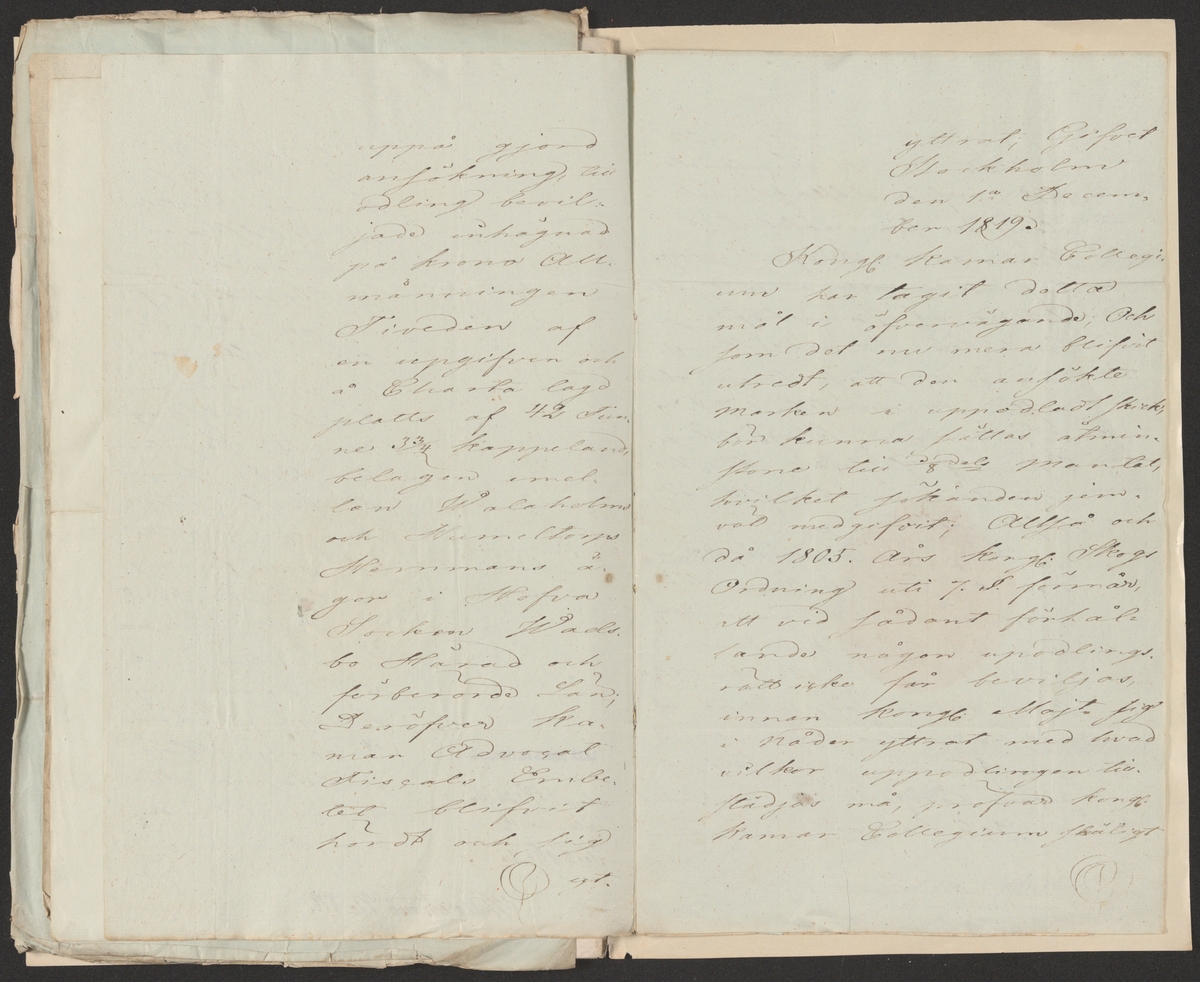 uppå gjord
ansökning, till
odling bevil-
jade inhägnad
på krono All-
männingen
Tiveden af
en upgifven och
å Charta lagd
platts af 42 Tun-
ne 3 3/4 kappeland,
belägen emel-
lan Walaholms
och Humeltorps
Hemmans ä-
gor i Hofva
Socken Wads-
bo Härad och
förberörde Län;
Deröfver Ka-
mar Advocat
Fiscals Embe-
tet blifvit
hördt och sig
yt-
yttrat; Gifvet
Stockholm
den 1a Decem-
ber 1819.
Kongl. Kamar Collegi-
um har tagit detta
mål i öfvervägande; Och
som det nu mera blifvit
utredt, att den ansökte
marken i uppodladt skick,
bör kunna sättas åtmin-
stone till 1/8 dels Mantal,
hvilket sökanden jem-
väl medgifvit; Altså och
då 1805. Års Kongl. Skogs
Ordning uti 7. §. förmår,
att vid sådant förhål-
lande någon upodlings-
rätt icke får beviljas,
innan Kongl. Majt. sig
i Nåder yttrat med hvad
vilkor uppodlingen till-
städjas må, pröfvar Kongl.
Kamar Collegium skäligt